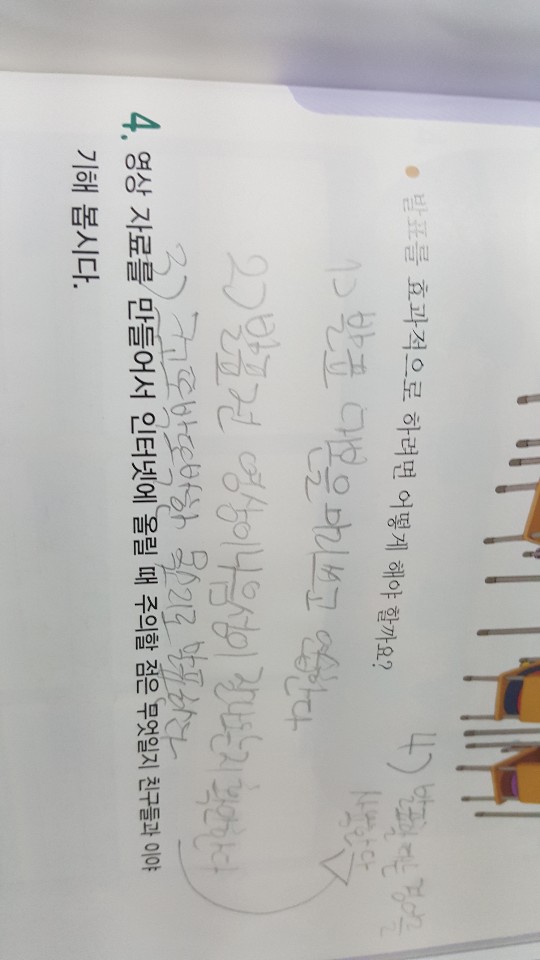 발표를 효과적으로 하려면 어떻게 해야 할까요?
1) 발표 대본을 미리 쓰고 연습한다
2) 발표 전 영상이나 음성이 잘 나는지 확인한다
3) 또박또박한 목소리로 발표한다
4) 발표할 때는
4. 영상 자료를 만들어서 인터넷에 올릴 때 주의할 점은 무엇일지 친구들과 이야
기해 봅시다.